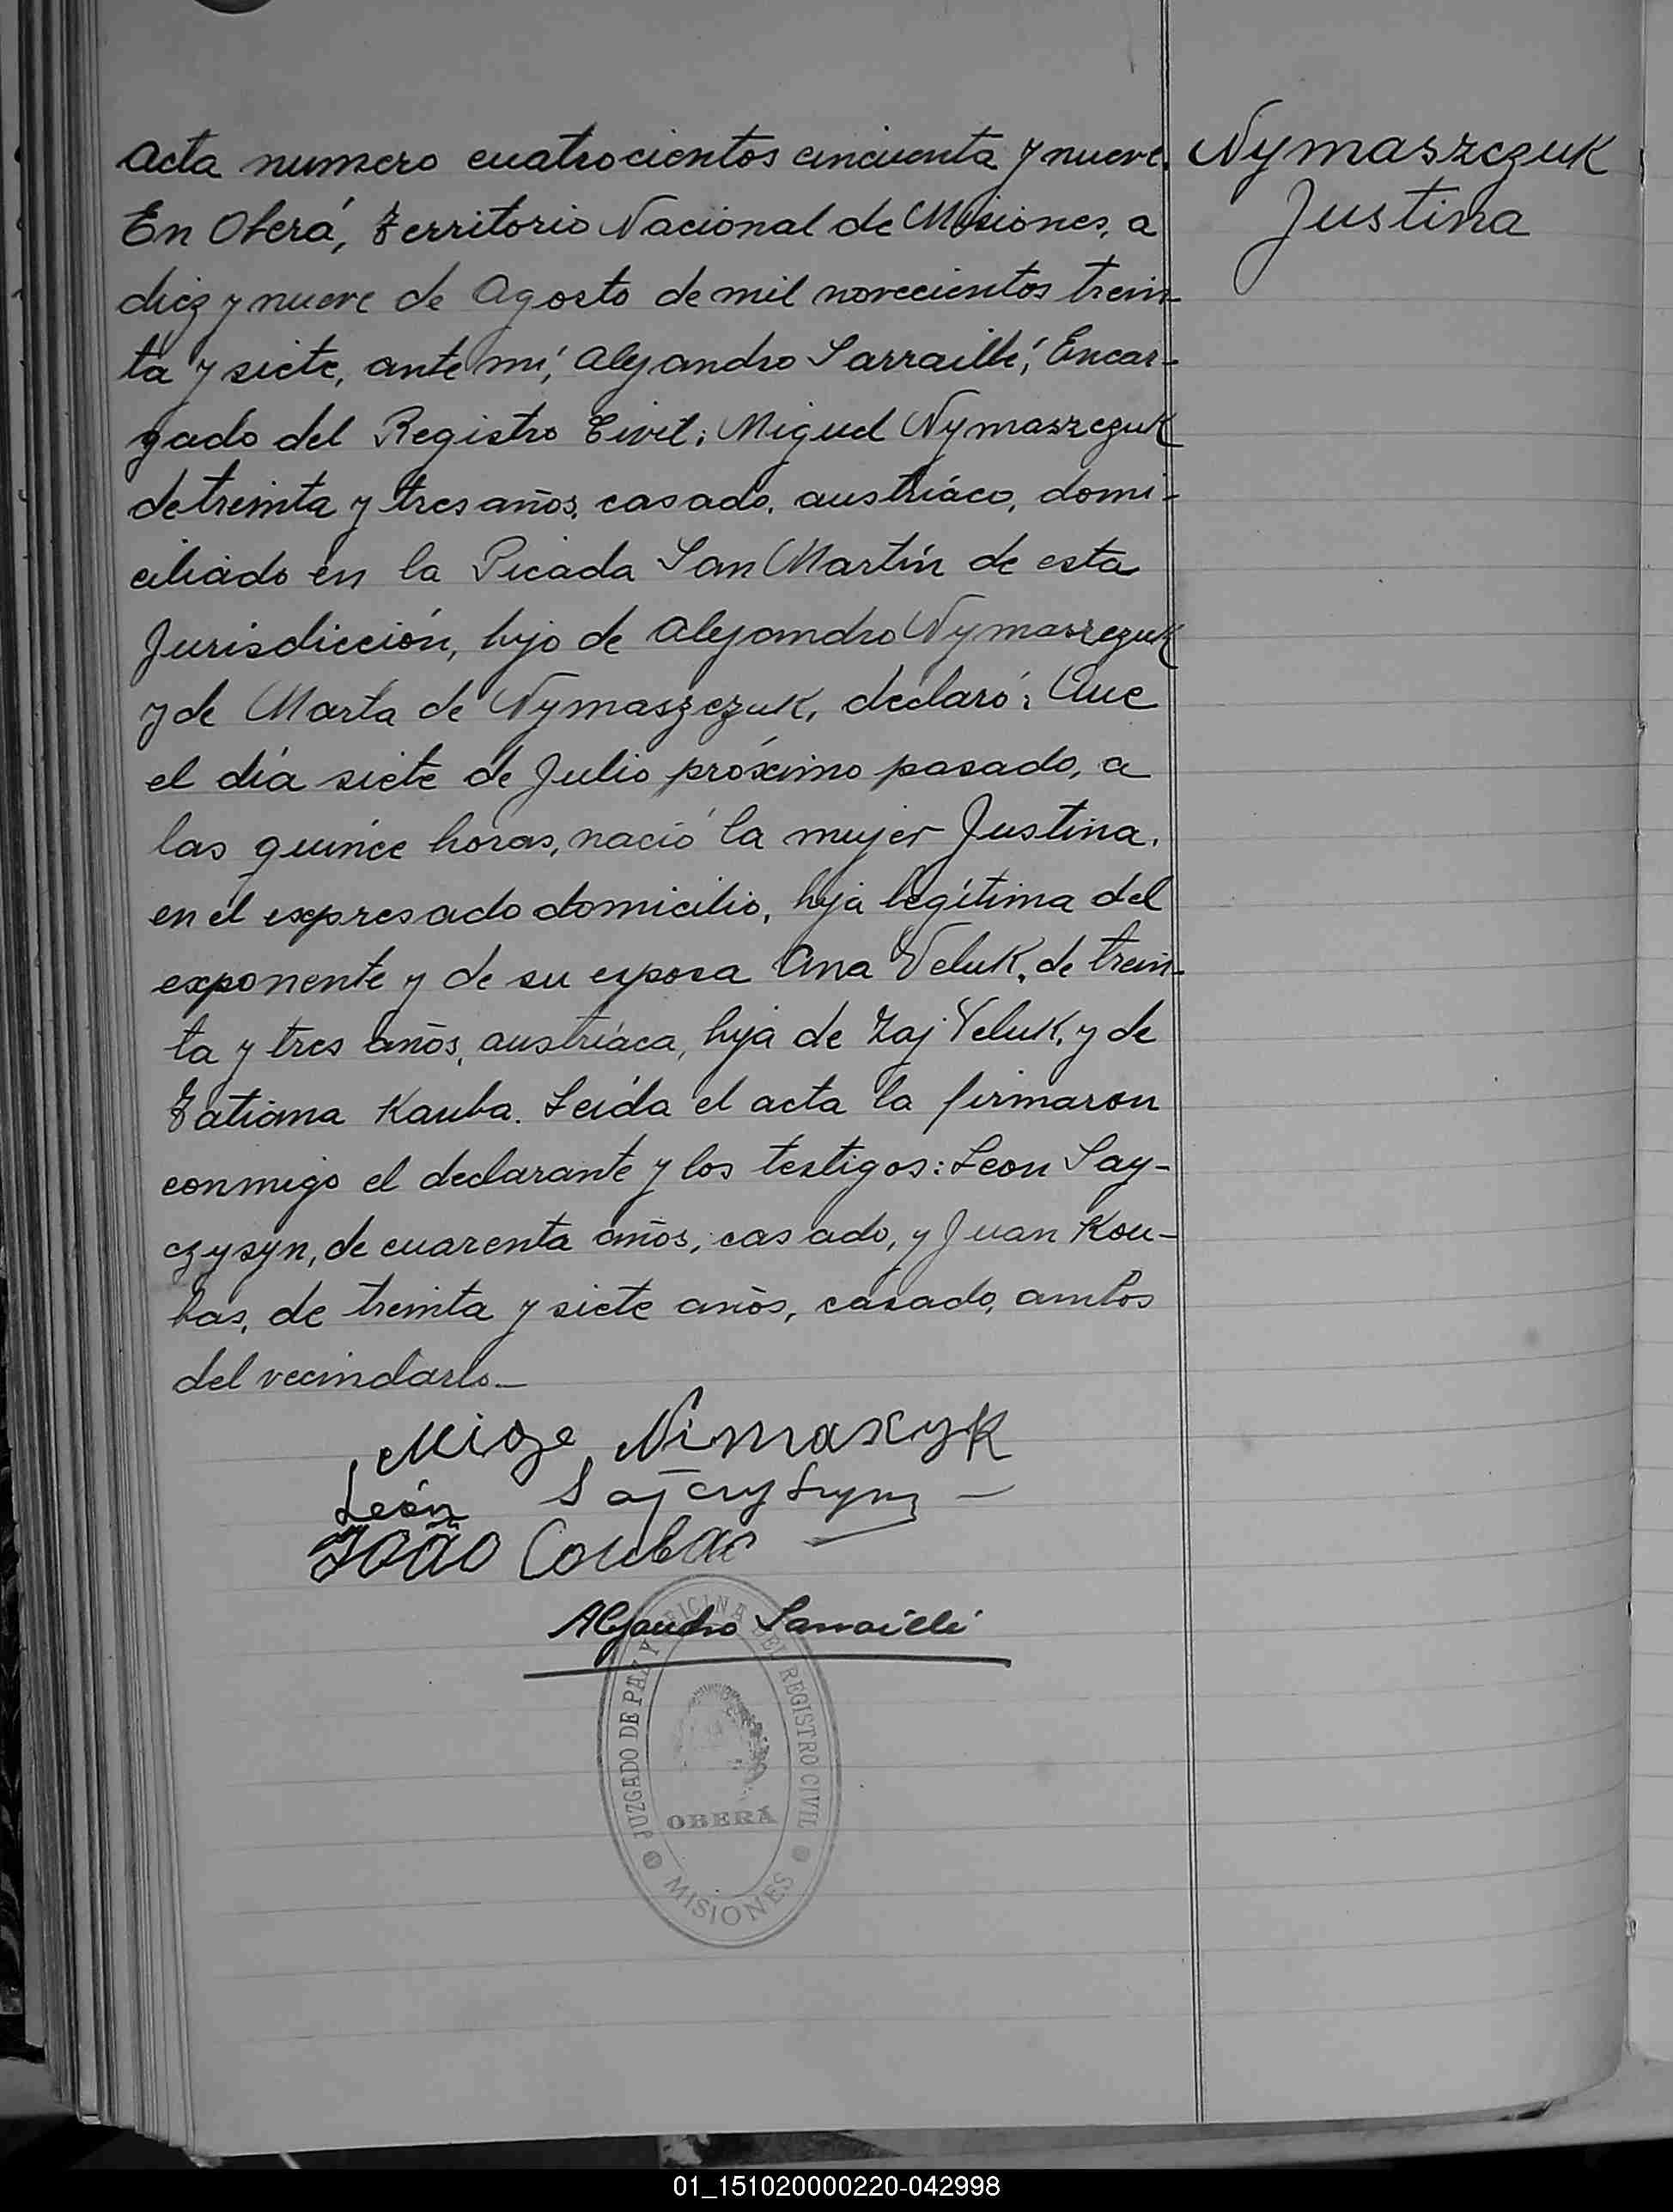 Acta numero cuatrocientos cincuenta y nueve.
Nymaszczuk
Justina
En Oberá, Territorio Nacional de Misiones, a
diez y nueve de Agosto de mil novecientos trein-
ta y siete, ante mí, Alejandro Sarraillé, Encar-
gado del Registro Civil: Miguel Nymaszczuk
de treinta y tres años, casado, austríaco, domi-
ciliado en la Picada San Martín de esta
Jurisdicción, hijo de Alejandro Nymaszczuk
y de Marta de Nymaszczuk, declaró: Que
el día siete de Julio próximo pasado, a
las quince horas, nació la mujer Justina,
en el expresado domicilio, hija legítima del
exponente y de su esposa Ana Veluk, de trein-
ta y tres años, austríaca, hija de Zaj Veluk, y de
Tatiana Kauba. Leída el acta la firmaron
conmigo el declarante y los testigos: Leon Say-
czysyn, de cuarenta años, casado, y Juan Kou-
bas, de treinta y siete años, casado, ambos
del vecindario_
Nimaxyk
León
João Coubas
Alejandro Sarraillé
JUZGADO DE PAZ Y OFICINA DEL REGISTRO CIVIL
OBERÁ
MISIONES
01_151020000220-042998